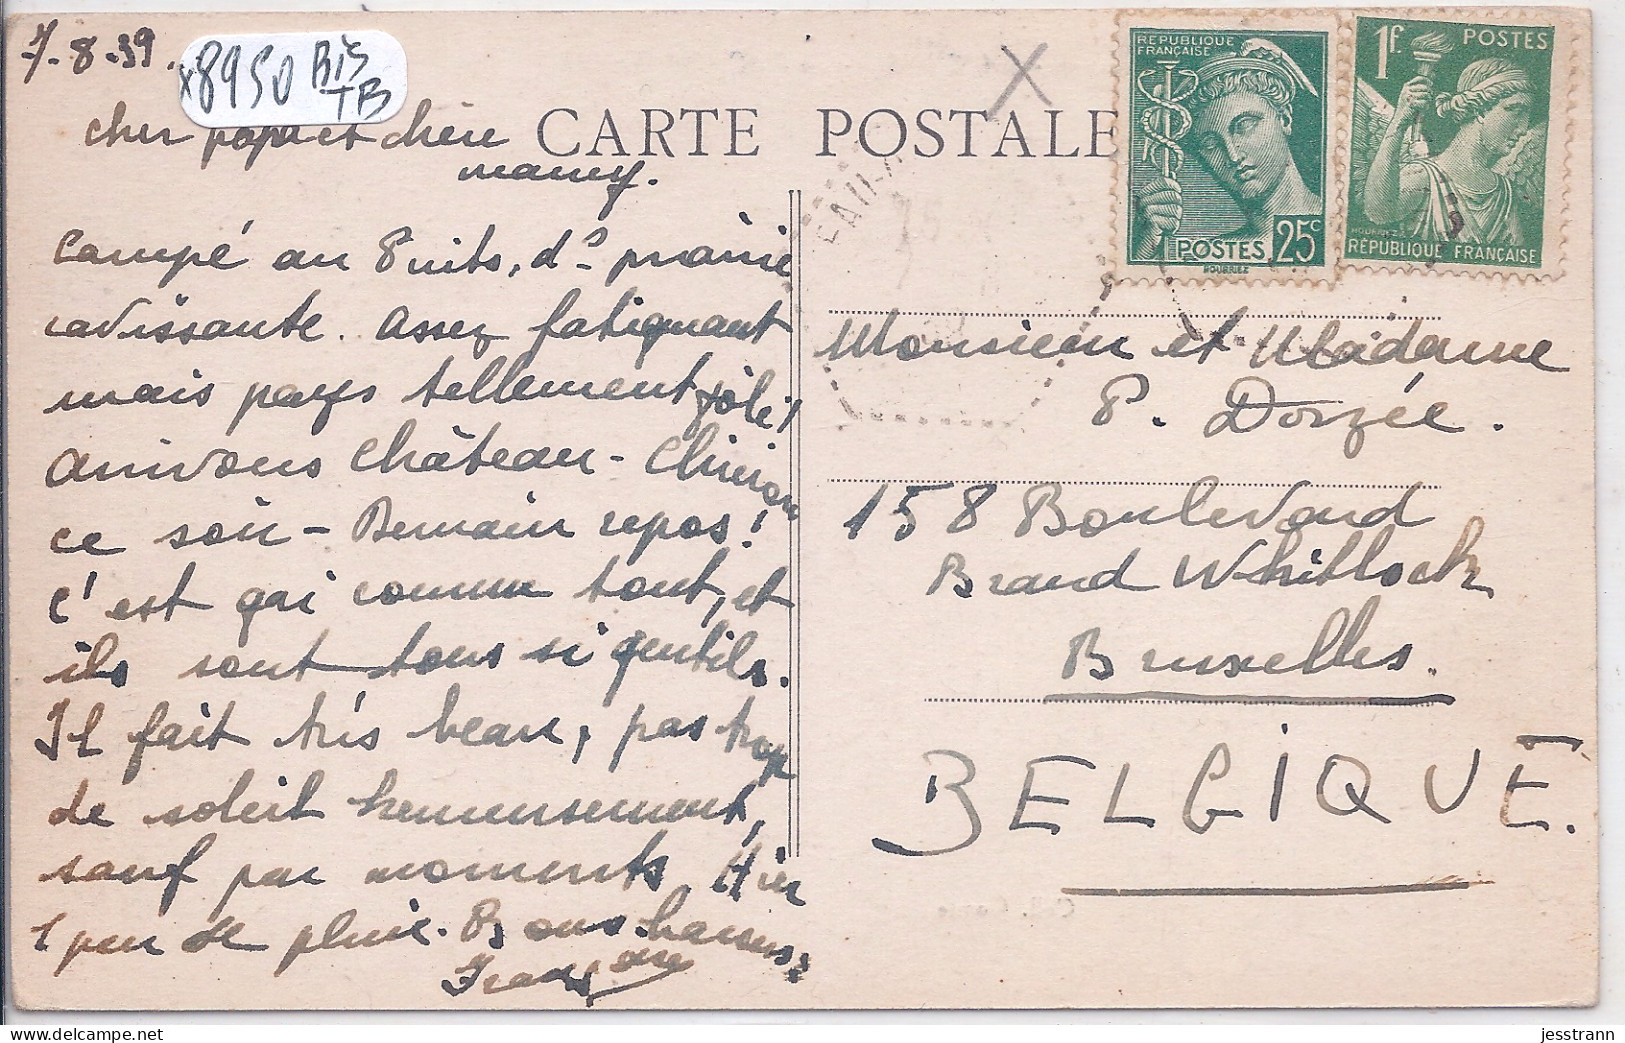 7-8-39.
x8950 BIS
TB
cher papa et chère
mamy.
CARTE POSTALE
Campé au Puits, ds prairie
ravissante. Assez fatiguant
mais pays tellement joli!
Arrivons Château-Chinon
ce soir - Demain repos!
C'est gai comme tout, et
ils sont tous si gentils.
Il fait très beau, pas trop
de soleil heureusement,
sauf par moments. Hier
1 peu de pluie. Bons baisers
Françoise
RÉPUBLIQUE
FRANÇAISE
POSTES 25c
1f. POSTES
RÉPUBLIQUE FRANÇAISE
Monsieur et Madame
P. Dorzée.
158 Boulevard
Brand Whitlock
Bruxelles.
BELGIQUE.
jesstrann